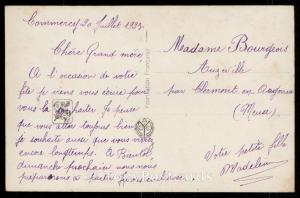 Commercy 20 Juillet 1923
Chère Grand mère
A l'occasion de votre
fête je viens vous écrire pour
vous la souhaiter. Je pense
que vous allez toujours bien
je souhaite aussi que vous viviez
encore longtemps. A Bautal,
dimanche prochain nous nous
préparerons à partir
Madame Bourgeois
Auzéville
par Clermont en Argonne
(Meuse)
Votre petite fille
Madeleine